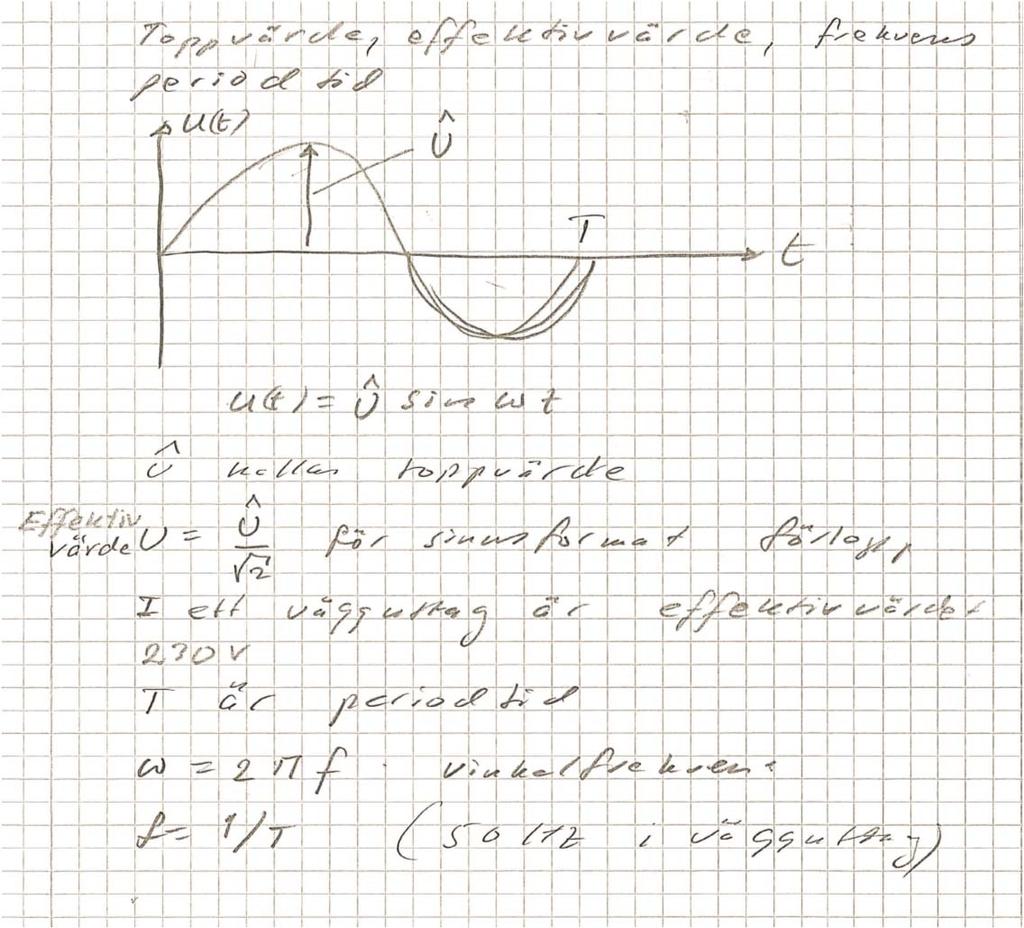 Toppvärde, effektivvärde, frekvens
periodtid
u(t)
Û
T
t
u(t) = Û sin ωt
Û kallas toppvärde
Effektiv
värde U = Û/√2 för sinusformat förlopp
I ett vägguttag är effektivvärdet
230 V
T är periodtid
ω = 2πf vinkelfrekvens
f = 1/T (50 Hz i vägguttag)